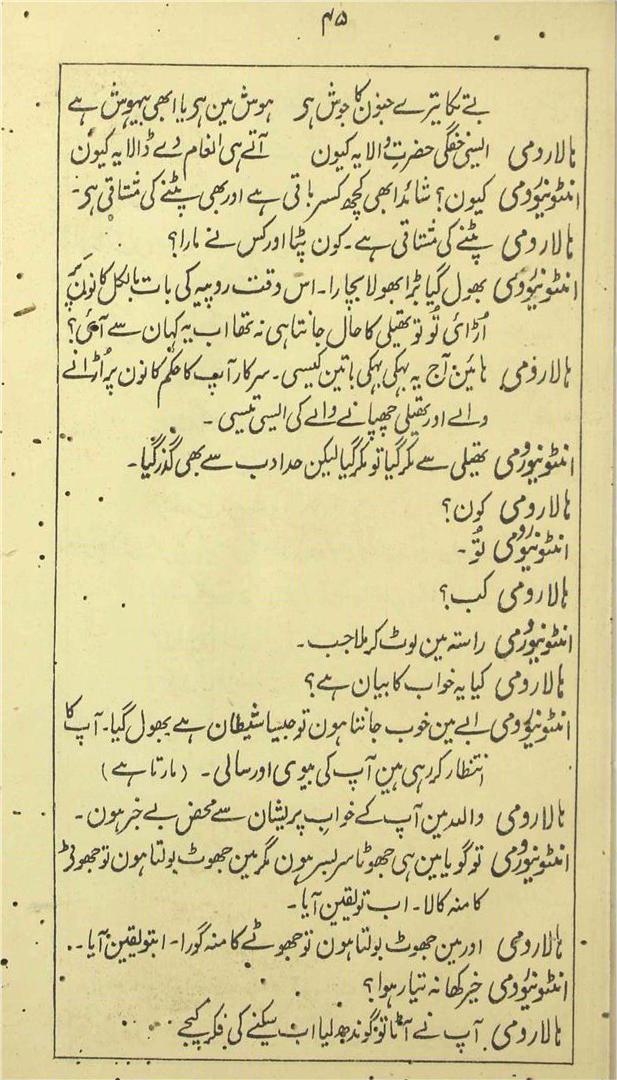 ۴۵
بے تکا تیرے جنون کا جوش ہی ہوش مین ہی یا ابھی بیہوش ہے
ہالارومی ایسی خفگی حضرتِ والا یہ کیون آتے ہی انعام دے ڈالا یہ کیون
انٹونیوُرومی کیون؟ شائد ابھی کچھ کسر باقی ہے اور بھی پٹنے کی مشتاقی ہی۔
ہالارومی پٹنے کی مشتاقی ہے۔ کون پٹا اور کس نے مارا؟
انٹونیوُرومی بھول گیا بڑا بھولا بچارا۔ اس وقت روپیہ کی بات بالکل کانون پر
اُڑائی تُو تو تھیلی کا حال جانتا ہی نہ تھا اب یہ کہان سے آئی؟
ہالارومی ہائین آج یہ بہکی بہکی باتین کیسی۔ سرکار آپ کا حکم کانون پر اُڑانے
والے اور تھیلی چھپانے والے کی ایسی تیسی۔
انٹونیوُرومی تھیلی سے مکر گیا تو مکر گیا لیکن حد ادب سے بھی گذر گیا۔
ہالارومی کون؟
انٹونیوُرومی تُو۔
ہالارومی کب؟
انٹونیوُرومی راستہ مین لوٹ کر ملا جب۔
ہالارومی کیا یہ خواب کا بیان ہے؟
انٹونیوُرومی ابے مین خوب جانتا ہون تو جیسا شیطان ہے بھول گیا۔ آپ کا
انتظار کر رہی ہین آپ کی بیوی اور سالی۔ (مارتا ہے)
ہالارومی واللہ مین آپ کے خواب پریشان سے محض بے خبر ہون۔
انٹونیوُرومی تو گویا مین ہی جھوٹا سر بسر ہون مگر مین جھوٹ بولتا ہون تو جھوٹے
کا منہ کالا۔ اب تو یقین آیا۔
ہالارومی اور مین جھوٹ بولتا ہون تو جھوٹے کا منہ گورا۔ ابتو یقین آیا۔
انٹونیوُرومی خیر کھانہ تیار ہوا؟
ہالارومی آپ نے آٹا تو گوندھ لیا اب سیکنے کی فکر کیجے